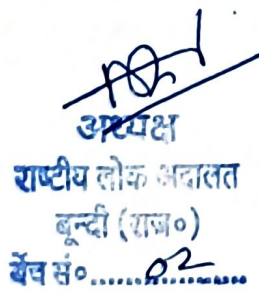 अध्यक्ष
राष्टीय लोक अदालत
बून्दी (राज०)
बेंच सं०........02........